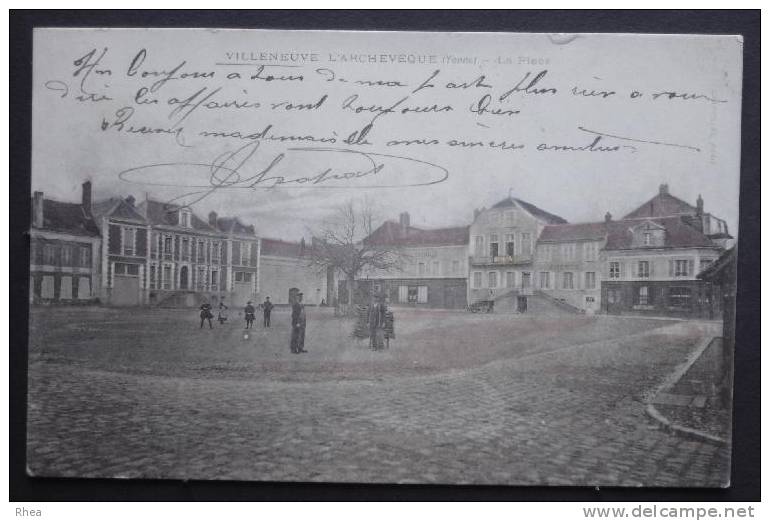 VILLENEUVE L'ARCHEVEQUE (Yonne) - La Place
Un bonjour à tous de ma part plus rien a vous
dire les affaires vont toujours bien
Recevez mademoiselle mes sincères amitiés
Rhea
www.delcampe.net